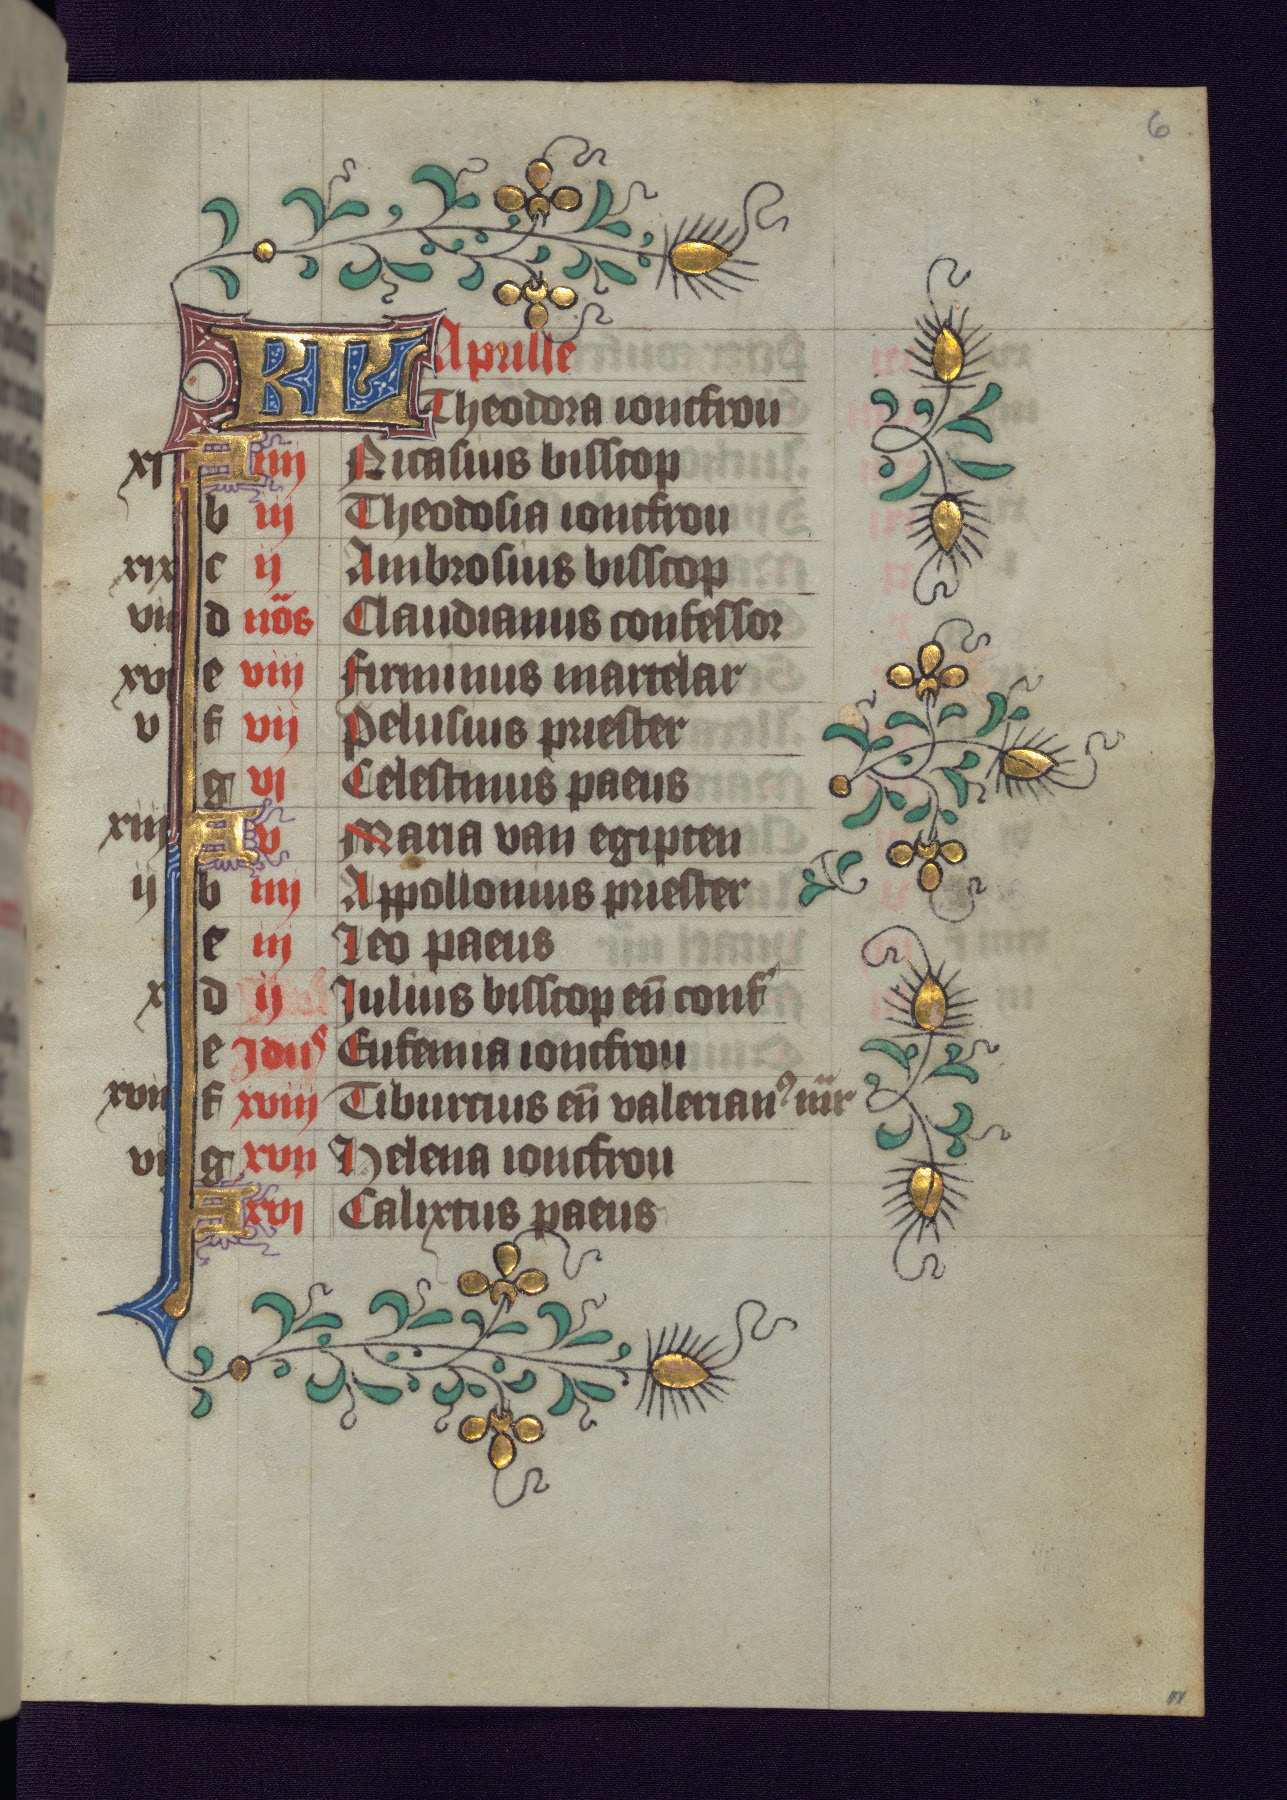 6
KL Aprille
Theodora ioncfrou
xi A iiij Nicasius bisscop
b iij Theodosia ioncfrou
xix c ij Ambrosius bisscop
viij d nōs Claudianus confessor
xvi e viij firminus martelar
v f vij Pelusius priester
g vi Celestinus paeus
xiij A v Maria van egipten
ij b iiij Appollonius priester
c iij Leo paeus
x d ij Julius bisscop eñ conf
e Jdus Eufemia ioncfrou
xviij f xviij Tiburtius eñ valerianꝰ mr
vij g xvij Helena ioncfrou
A xvi Calixtus paeus